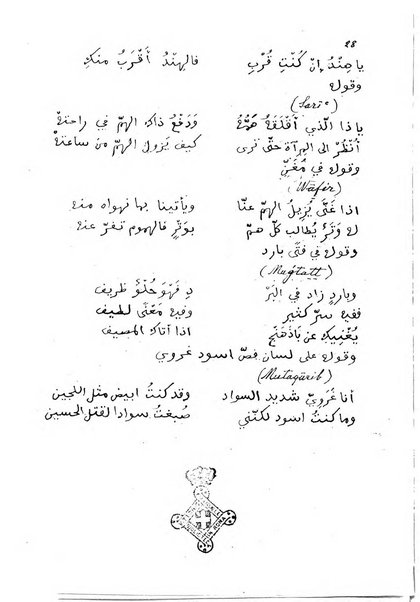 28
يا هِنْدُ إِنْ كُنْتِ قُرْبِ فالهِنْدُ أَقْرَبُ منكِ
وقوله
(Sarīʿ)
يا ذا الّذي أَقْلَقَهُ هَمُّهُ وَدَفْعُ ذاك الهمّ في راحتهْ
أنْظُرْ الى المِرآة حتّى ترى كيف يَزولُ الهمّ من ساعتهْ
وقوله في مُغَنٍّ
(Wāfir)
اذا غَنَّى يُزِيلُ الهمّ عنّا ويأتينا بما نهواه منهُ
لهُ وَتَرٌ يُطالب كلّ همّ بوَتْرٍ فالهموم تفرّ عنهُ
وقوله في فتًى بارد
(Muǧtatt)
وباردٍ زاد في البَرْ دِ فَهْوَ حُلْوٌ ظريف
ففيه سرّ كثير وفيه مَعْنًى لطيف
يُغْنِيك عن بَاذَهَنْجٍ اذا أتاك المصيف
وقوله على لسان فصّ اسود غروي
(Mutaqārib)
أنا غَرَويّ شديد السواد وقد كنتُ ابيض مثل اللجين
وما كنتُ اسود لكنّني صُبغتُ سوادا لقتل الحسين